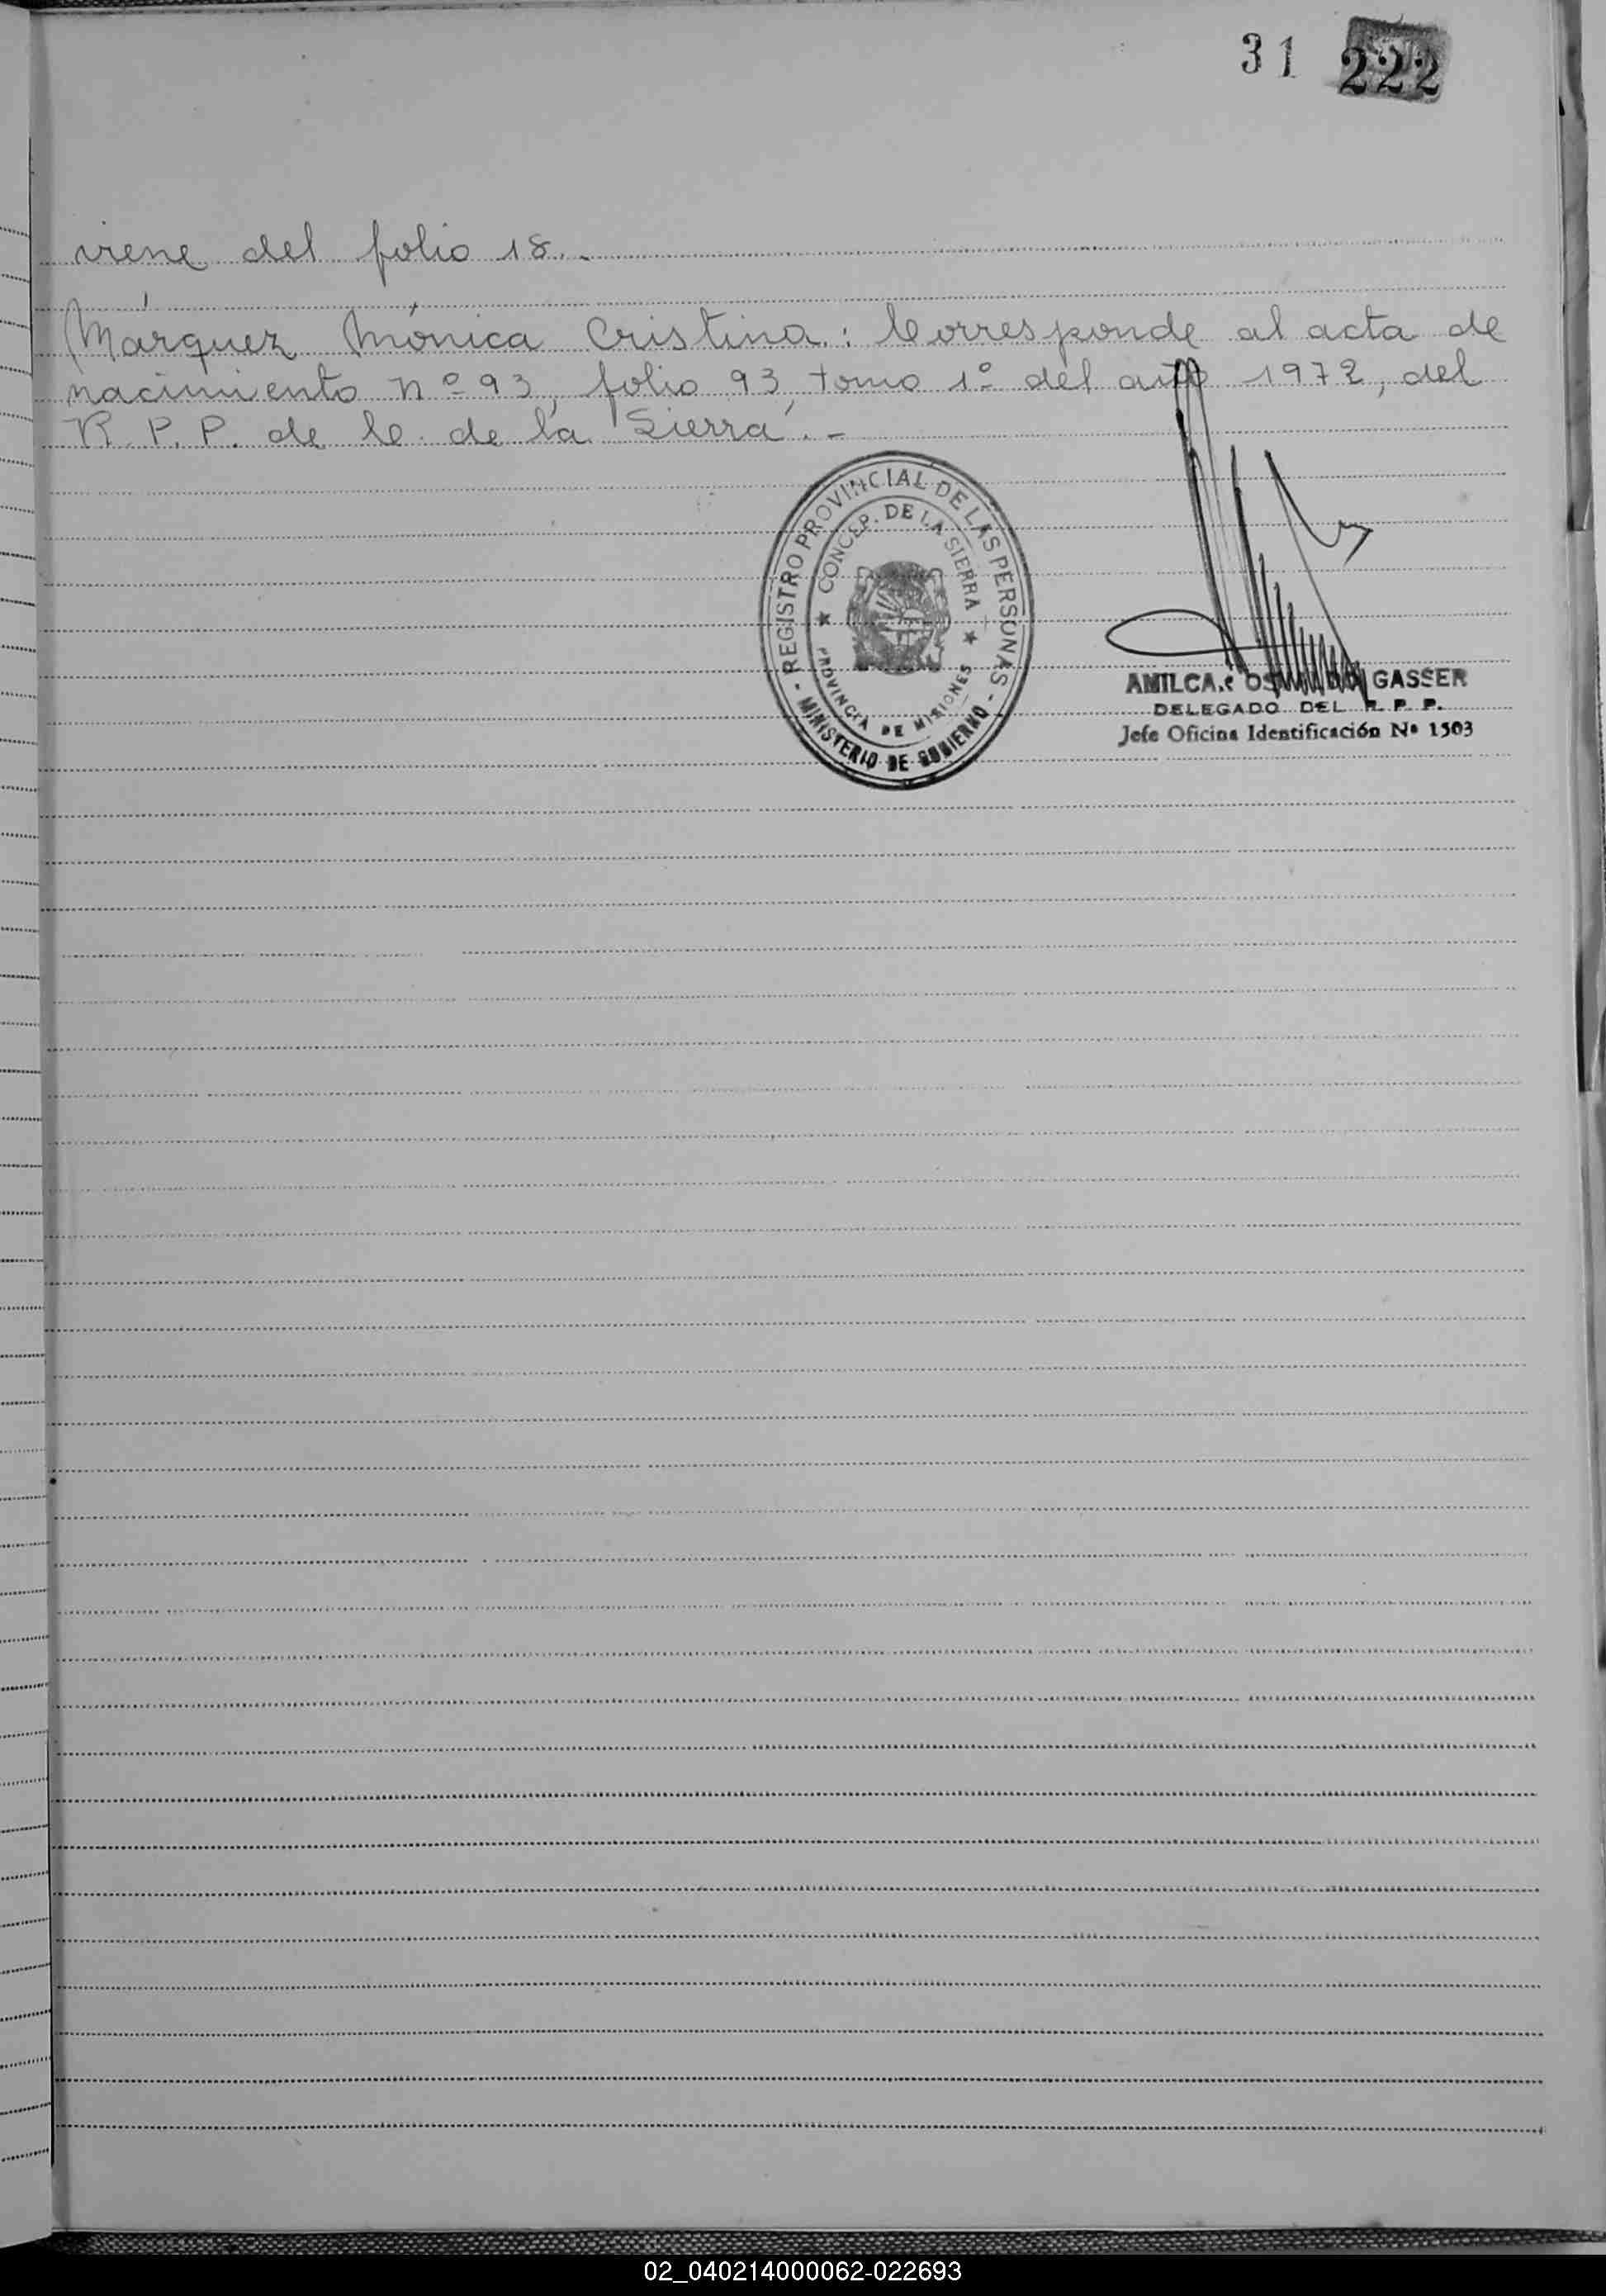 31 222
viene del folio 18.-
Márquez Mónica Cristina: Corresponde al acta de
nacimiento nº 93, folio 93, tomo 1º del año 1972, del
R.P.P. de C. de la Sierra.-
- REGISTRO PROVINCIAL DE LAS PERSONAS -
★ CONCEP. DE LA SIERRA ★
PROVINCIA DE MISIONES
MINISTERIO DE GOBIERNO
GASSER
DELEGADO DEL R. P. P.
Jefe Oficina Identificación Nº 1503
02_040214000062-022693